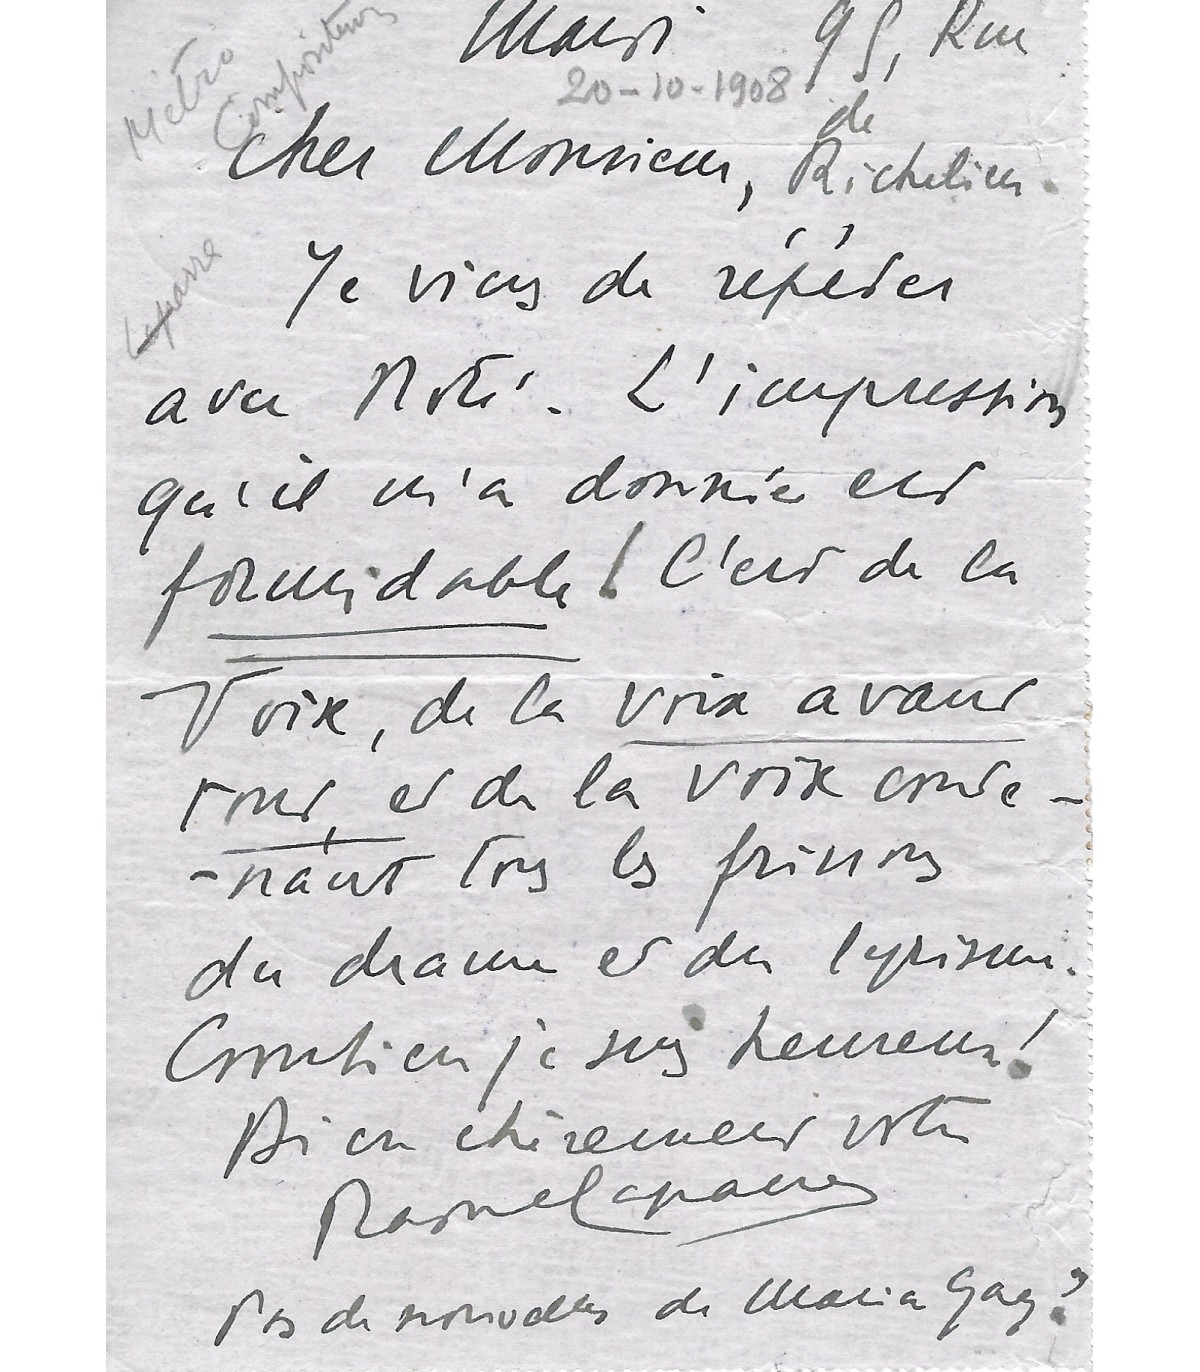 Mardi 95, Rue
20-10-1908
de
Cher Monsieur, Richelieu.
Métro
Compositeur
Laparra
Je viens de répéter
avec Noté. L'impression
qu'il m'a donnée est
formidable! C'est de la
Voix, de la voix avant
tout, et de la voix conte-
-nant tous les frissons
du drame et du lyrisme.
Combien je suis heureux!
Bien chèrement votre
Raoul Laparra
Pas de nouvelles de Maria Gay?